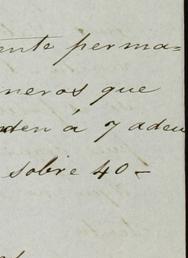 ente perma=
neros que
nden á 7 adeu
sobre 40-